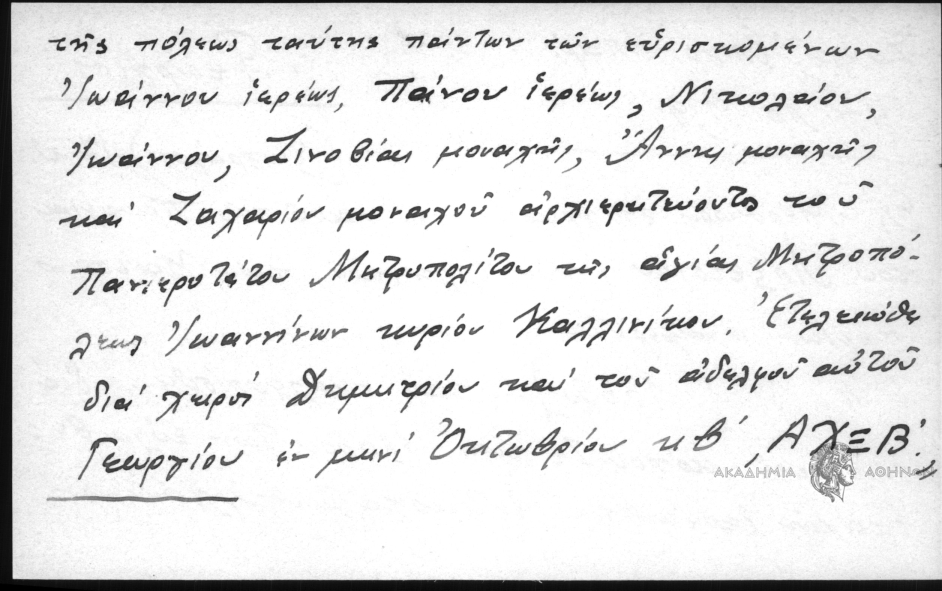 τῆς πόλεως ταύτης πάντων τῶν εὑρισκομένων
Ἰωάννου ἱερέως, Πάνου ἱερέως, Νικολάου,
Ἰωάννου, Ζινοβίας μοναχῆς, Ἄννης μοναχῆς
καί Ζαχαρίου μοναχοῦ ἀρχιερατεύοντος τοῦ
Πανιεροτάτου Μητροπολίτου τῆς ἁγίας Μητροπό-
λεως Ἰωαννίνων κυρίου Καλλινίκου. Ἐτελειώθη
διά χειρός Δημητρίου καί τοῦ ἀδελφοῦ αὐτοῦ
Γεωργίου ἐν μηνί Ὀκτωβρίου κβ΄, ΑΧΞΒ΄.»
ΑΚΑΔΗΜΙΑ ΑΘΗΝΩΝ